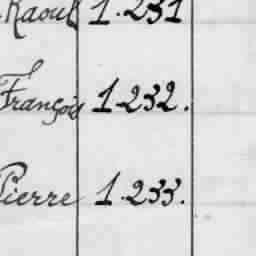 Raoul 1.231
François 1.232.
Pierre 1.233.